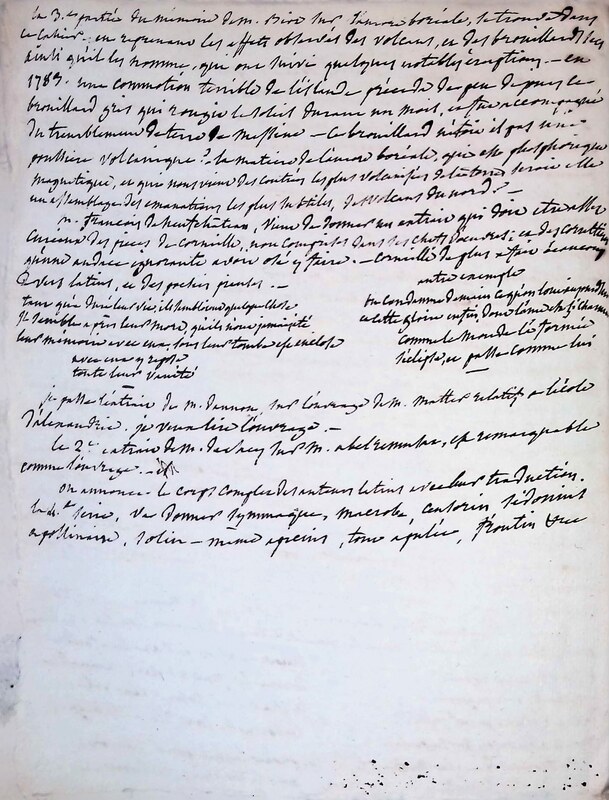 la 3.e partie du mémoire de m. Biot sur l'aurore boréale, se trouve dans
ce cahier. en reprenant les effets observés des volcans, et des brouillards secs
ainsi qu'il les nomme, que ont suivi quelques notables éruptions — en
1783. une commotion terrible de l'islande précéda de peu de jours ce
brouillard gris qui rougit le soleil durant un mois, et fut accompagné
du tremblement de terre de Messine — ce brouillard n'étoit il pas une
poussière volcanique? la matière de l'aurore boréale, qui est phosphorique
magnétique, et qui nous vient des contrées les plus volcanisées de la terre seroit elle
un assemblage des émanations les plus subtiles, des volcans du nord? —
m. françois de neufchateau, vient de donner un extrait qui doit etre assez
curieux des pieces de corneille, non comprises dans ses chefs d'œuvres; et des corrections
qu'une audace ignorante avoit osé y faire. — corneille de plus a fait beaucoup
de vers latins, et des poesies pieuses. —
autre exemple
tant que dure leur vie, ils semblent quelque chose
il semble après leur mort, qu'ils n'ont jamais été
leur mémoire avec eux, sous leur tombe est enclose
avec eux y repose
toute leur vanité
ou condamne demain ce qu'on loue aujourd'hui
et cette gloire enfin, dont l'ame est si charmée
comme le monde l'a formée
s'éclipse, et passe comme lui
je passe l'extrait de m. daunou, sur l'ouvrage de m. matter relatif à l'école
d'alexandrie. je veux lire l'ouvrage. —
le 2.e extrait de m. de sacy sur m. abel remusat, est remarquable
comme l'ouvrage. —
on annonce le corps complet des auteurs latins avec leur traduction.
la serie, va donner symmaque, macrobe censorin sidonius
apollinaire, solin — même apicius, tout apulée, frontin &c